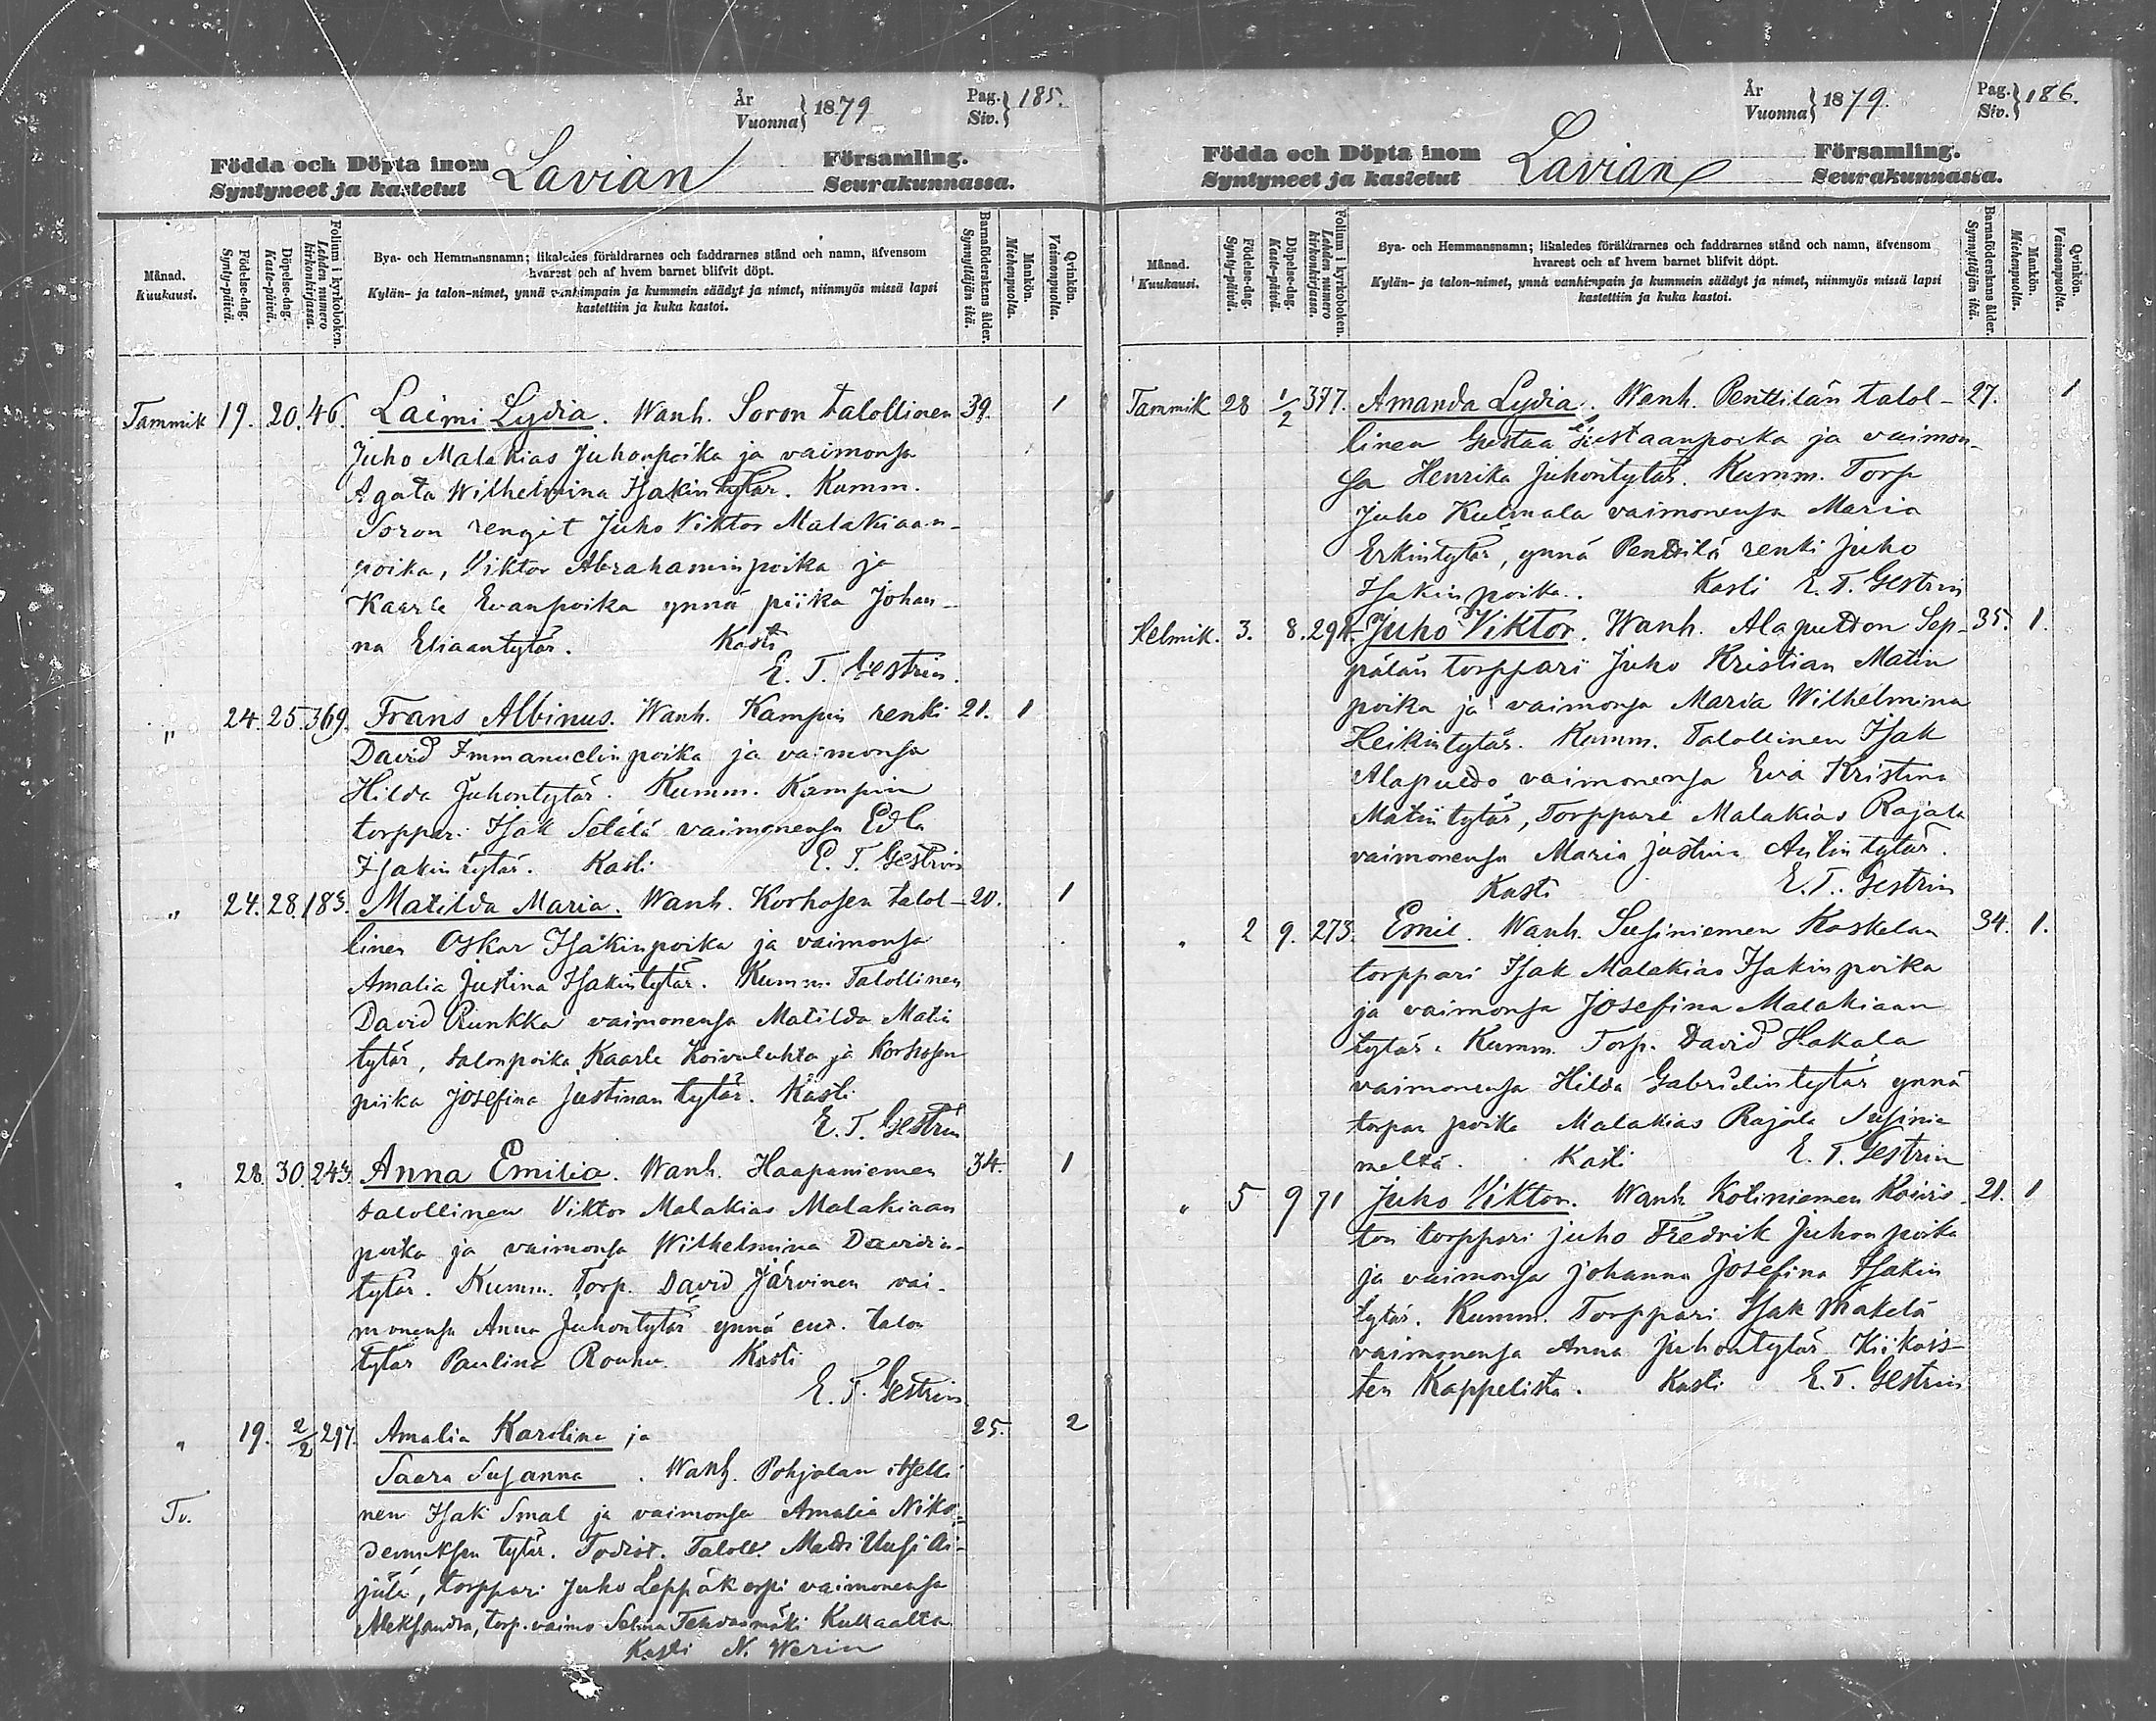 År
Vuonna } 1879
Pag.
Siv. } 185.
Födda och Döpta inom
Syntyneet ja kastetut
Lavian
Församling.
Seurakunnassa.
Månad.
Kuukausi.
Födelse-dag.
Synty-päivä.
Döpelse-dag.
Kaste-päivä.
Folium i kyrkoboken.
Lehden numero kirkonkirjassa.
Bya- och Hemmansnamn; likaledes föräldrarnes och faddrarnes stånd och namn, äfvensom
hvarest och af hvem barnet blifvit döpt.
Kylän- ja talon-nimet, ynnä vanhimpain ja kummein säädyt ja nimet, niinmyös missä lapsi
kastettiin ja kuka kastoi.
Barnaföderskans ålder.
Synnyttäjän ikä.
Mankön.
Miehenpuolta.
Qvinkön.
Vaimonpuolta.
Tammik 19. 20. 46. Laimi Lydia. Wanh. Soron talollinen 39. 1
Juho Malakias Juhonpoika ja vaimonsa
Agata Wilhelmina Isakintytär. Kumm.
Soron rengit Juho Viktor Malakiaan-
poika, Viktor Abrahaminpoika ja
Kaarle Evanpoika ynnä piika Johan-
na Eliaantytär. Kasti
E. T. Gestrin.
" 24. 25. 369. Frans Albinus. Wanh. Kampin renki 21. 1
David Immanuelinpoika ja vaimonsa
Hilda Juhontytär. Kumm. Kampin
torppari Isak Setälä vaimonensa Edla
Isakintytär. Kasti E. T. Gestrin
" 24. 28. 183. Matilda Maria. Wanh. Korhosen talol- 20. 1
linen Oskar Isakinpoika ja vaimonsa
Amalia Justina Isakintytär. Kumm. Talollinen
David Runkka vaimonensa Matilda Matin
tytär, talonpoika Kaarle Koivuluhta ja Korhosen
piika Josefina Justinantytär. Kasti
E. T. Gestrin
" 28. 30. 243. Anna Emilia. Wanh. Haapaniemen 34. 1
talollinen Viktor Malakias Malakiaan
poika ja vaimonsa Wilhelmina Davidin-
tytär. Kumm. Torp. David Järvinen vai-
monensa Anna Juhontytär ynnä talon
tytär Paulina Rouhu. Kasti
E. T. Gestrin
" 19. 2/2 297. Amalia Karolina ja 25. 2
Saara Susanna. Wanh. Pohjolan itselli
Tv. nen Isak Smal ja vaimonsa Amalia Niko-
demuksen tytär. Todist. Taloll. Matti Uusi Ai-
jälä, torppari Juho Leppäkorpi vaimonensa
Aleksandra, torp. vaimo Selma Tehdasmäki Kullaalta
Kasti N. Werin
År
Vuonna } 1879.
Pag.
Siv. } 186.
Födda och Döpta inom
Syntyneet ja kastetut
Lavian
Församling.
Seurakunnassa.
Månad.
Kuukausi.
Födelse-dag.
Synty-päivä.
Döpelse-dag.
Kaste-päivä.
Folium i kyrkoboken.
Lehden numero kirkonkirjassa.
Bya- och Hemmansnamn; likaledes föräldrarnes och faddrarnes stånd och namn, äfvensom
hvarest och af hvem barnet blifvit döpt.
Kylän- ja talon-nimet, ynnä vanhimpain ja kummein säädyt ja nimet, niinmyös missä lapsi
kastettiin ja kuka kastoi.
Barnaföderskans ålder.
Synnyttäjän ikä.
Mankön.
Miehenpuolta.
Qvinkön.
Vaimonpuolta.
Tammik 28 1/2 377. Amanda Lydia. Wanh. Penttilän talol- 27. 1
linen Gustaa Gustaanpoika ja vaimon-
sa Henrika Juhontytär. Kumm. Torp
Juho Kulmala vaimonensa Maria
Erkintytär, ynnä Penttilä renki Juho
Isakinpoika. Kasti E. T. Gestrin
Helmik. 3. 8. 294. Juho Viktor. Wanh. Alaputton Sep- 35. 1.
pälän torppari Juho Kristian Matin
poika ja vaimonsa Maria Wilhelmina
Heikintytär. Kumm. Talollinen Isak
vaimonensa Eva Kristina
Matintytär, Torppari Malakias Rajala
vaimonensa Maria Justina tytär.
Kasti E. T. Gestrin
" 2 9. 273. Emil. Wanh. Susiniemen Koskelan 34. 1.
torppari Isak Malakias Isakinpoika
ja vaimonsa Josefina Malakiaan
tytär. Kumm. Torp. David Hakala
vaimonensa Hilda Gabrielintytär ynnä
torpan poika Malakias Rajala Susinie
meltä. Kasti E. T. Gestrin
" 5 9 71 Juho Viktor. Wanh. Kotiniemen Koivis- 21. 1
ton torppari Juho Fredrik Juhonpoika
ja vaimonsa Johanna Josefina Isakin
tytär. Kumm. Torppari Isak Mäkelä
vaimonensa Anna Juhontytär Kiikois-
ten Kappelista. Kasti E. T. Gestrin